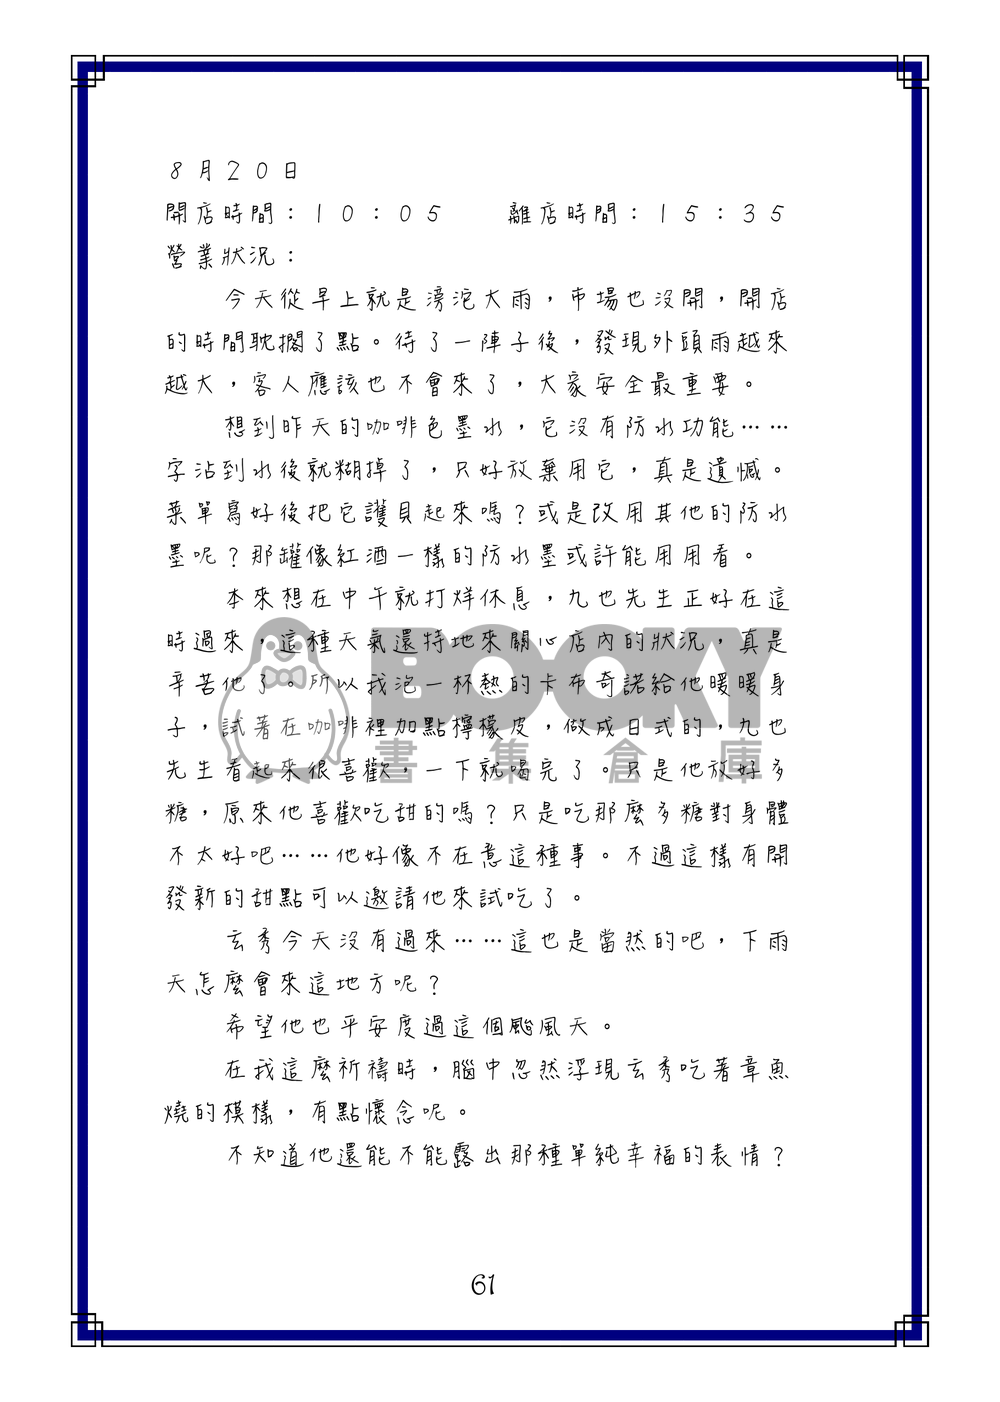 ８月２０日
開店時間：１０：０５　　離店時間：１５：３５
營業狀況：
今天從早上就是滂沱大雨，市場也沒開，開店
的時間耽擱了點。待了一陣子後，發現外頭雨越來
越大，客人應該也不會來了，大家安全最重要。
想到昨天的咖啡色墨水，它沒有防水功能……
字沾到水後就糊掉了，只好放棄用它，真是遺憾。
菜單寫好後把它護貝起來嗎？或是改用其他的防水
墨呢？那罐像紅酒一樣的防水墨或許能用用看。
本來想在中午就打烊休息，九也先生正好在這
時過來，這種天氣還特地來關心店內的狀況，真是
辛苦他了。所以我泡一杯熱的卡布奇諾給他暖暖身
子，試著在咖啡裡加點檸檬皮，做成日式的，九也
先生看起來很喜歡，一下就喝完了。只是他放好多
糖，原來他喜歡吃甜的嗎？只是吃那麼多糖對身體
不太好吧……他好像不在意這種事。不過這樣有開
發新的甜點可以邀請他來試吃了。
玄秀今天沒有過來……這也是當然的吧，下雨
天怎麼會來這地方呢？
希望他也平安度過這個颱風天。
在我這麼祈禱時，腦中忽然浮現玄秀吃著章魚
燒的模樣，有點懷念呢。
不知道他還能不能露出那種單純幸福的表情？
BOOKY
書集倉庫
61